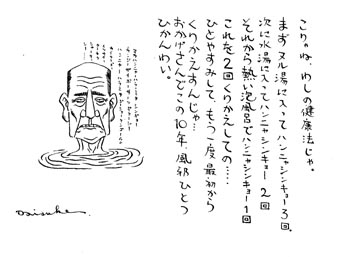 こりゃね、わしの健康法じゃ。
まずヌル湯に入ってハンニャシンキョー3回、
次に水湯に入ってハンニャシンキョー2回
それから熱い泡風呂でハンニャシンキョー1回
これを2回くりかえしての……
ひとやすみして、もう一度最初から
くりかえすんじゃ…
おかげさんでこの10年、風邪ひとつ
ひかんわい。
Daisuke